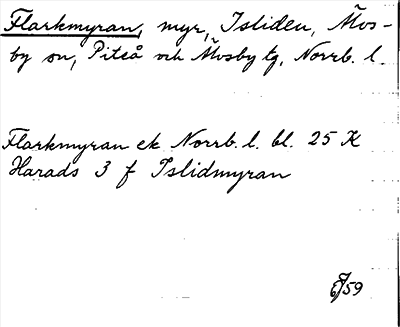 Flarkmyran, myr, Isliden, Älvs-
by sn, Piteå och Älvsby tg, Norrb. l.
Flarkmyran ek Norrb. l. bl. 25 K
Harads 3 f Islidmyran
59